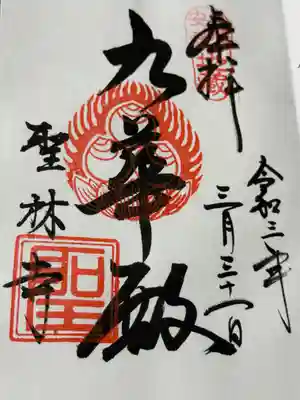 奉拝
大悲殿
聖林寺
令和三年
三月三十一日
聖